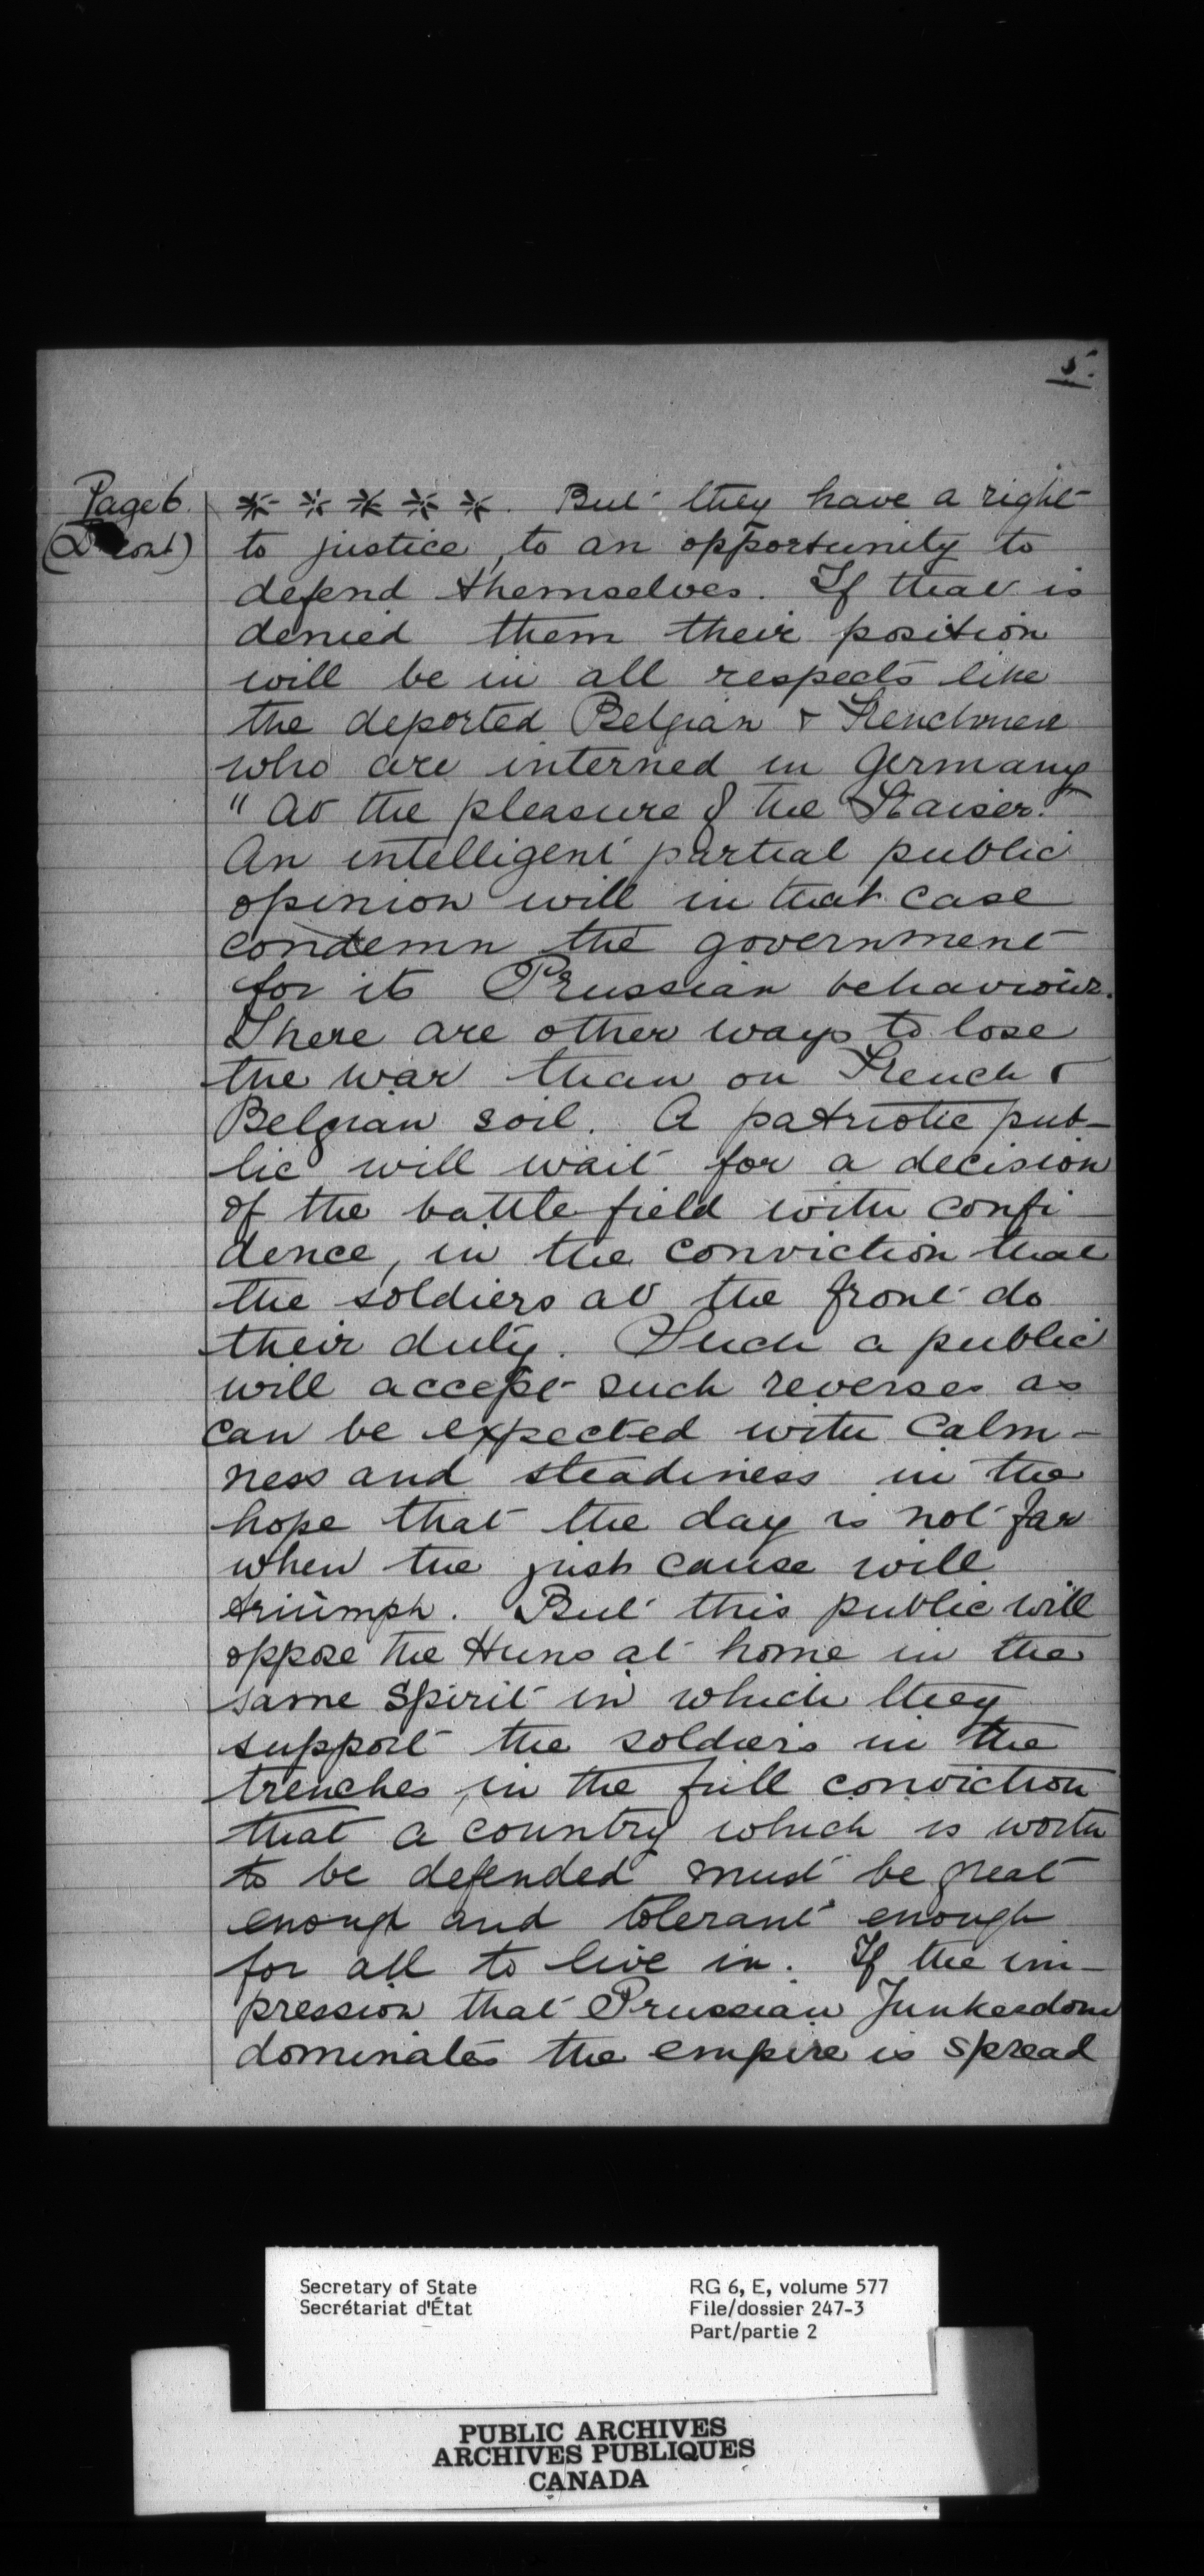 5.
Page 6.
(D cont)
* * * * *. But they have a right
to justice, to an opportunity to
defend themselves. If that is
denied them their position
will be in all respects like
the deported Belgian & Frenchmen
who are interned in Germany
"at the pleasure of the Kaiser."
An intelligent partial public
opinion will in that case
condemn the government
for its Prussian behaviour.
There are other ways to lose
the war than on French &
Belgian soil. A patriotic pub-
lic will wait for a decision
of the battle field with confi
dence, in the conviction that
the soldiers at the front do
their duty. Such a public
will accept such reverses as
can be expected with calm-
ness and steadiness in the
hope that the day is not far
when the just cause will
triumph. But this public will
oppose the Huns at home in the
same spirit in which they
support the soldiers in the
trenches, in the full conviction
that a country which is worth
to be defended must be great
enough and tolerant enough
for all to live in. If the im-
pression that Prussian Junkerdom
dominates the empire is spread
Secretary of State
Secrétariat d'État
RG 6, E, volume 577
File/dossier 247-3
Part/partie 2
PUBLIC ARCHIVES
ARCHIVES PUBLIQUES
CANADA